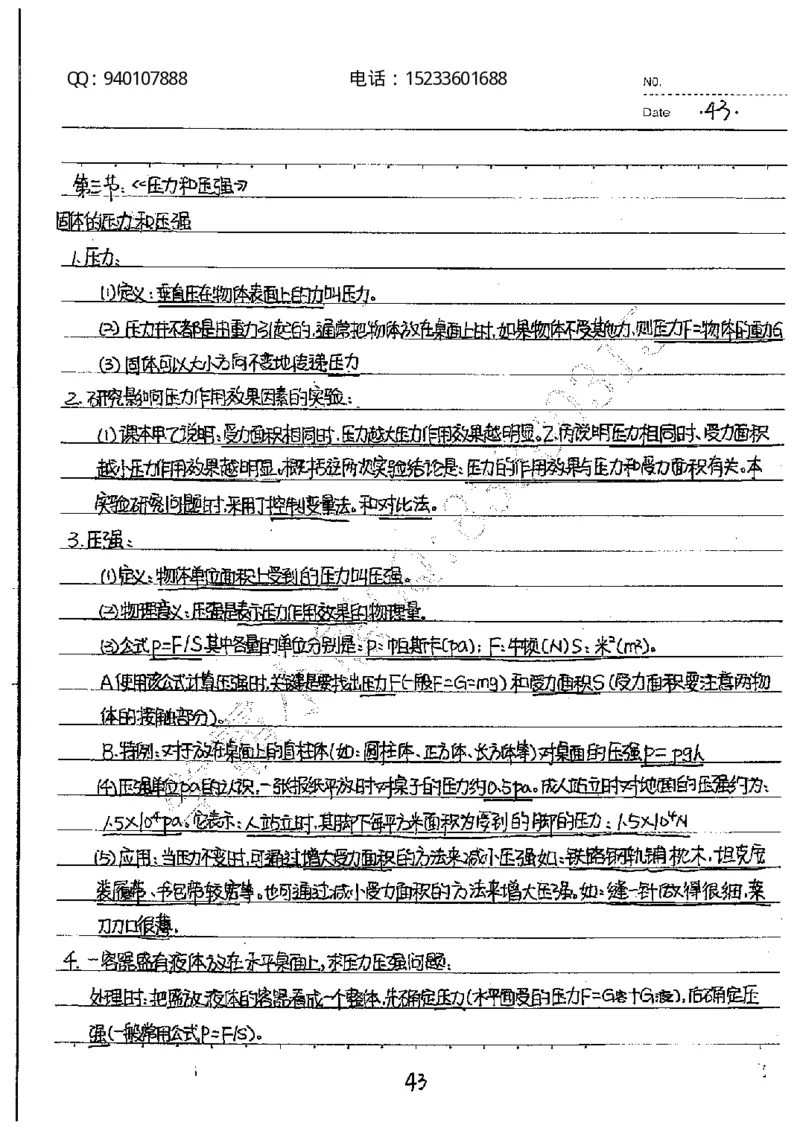 QQ：940107888 电话：15233601688
NO.
Date ·43·
第三节：<<压力和压强>>
固体的压力和压强
1.压力：
(1)定义：垂直压在物体表面上的力叫压力。
(2)压力并不都是由重力引起的，通常把物体放在桌面上时，如果物体不受其他力，则压力F=物体的重力G
(3)固体可以大小方向不变地传递压力
2.研究影响压力作用效果因素的实验：
(1)课本甲乙说明：受力面积相同时，压力越大压力作用效果越明显。乙、丙说明压力相同时、受力面积
越小压力作用效果越明显。概括这两次实验结论是：压力的作用效果与压力和受力面积有关。本
实验研究问题时，采用了控制变量法。和对比法。
3.压强：
(1)定义：物体单位面积上受到的压力叫压强。
(2)物理意义：压强是表示压力作用效果的物理量。
(3)公式p=F/S其中各量的单位分别是：p：帕斯卡(pa)；F：牛顿(N)S：米²(m²)。
A使用该公式计算压强时，关键是要找出压力F(一般F=G=mg)和受力面积S(受力面积要注意两物
体的接触部分)。
B.特例：对于放在桌面上的直柱体(如：圆柱体、正方体、长方体等)对桌面的压强p=ρgh
(4)压强单位pa的认识，一张报纸平放时对桌子的压力约0.5pa。成人站立时对地面的压强约为：
1.5×10⁴pa。它表示：人站立时，其脚下每平方米面积为受到的脚的压力：1.5×10⁴N
(5)应用：当压力不变时，可通过增大受力面积的方法来减小压强如：铁路钢轨铺枕木，坦克安
装履带、书包带较宽等。也可通过减小受力面积的方法来增大压强。如：缝一针做得很细，菜
刀刀口很薄。
4.一容器盛有液体放在水平桌面上，求压力压强问题：
处理时：把盛放液体的容器看成一个整体，先确定压力(水平面受的压力F=G容+G液)，后确定压
强(一般常用公式P=F/S)。
43